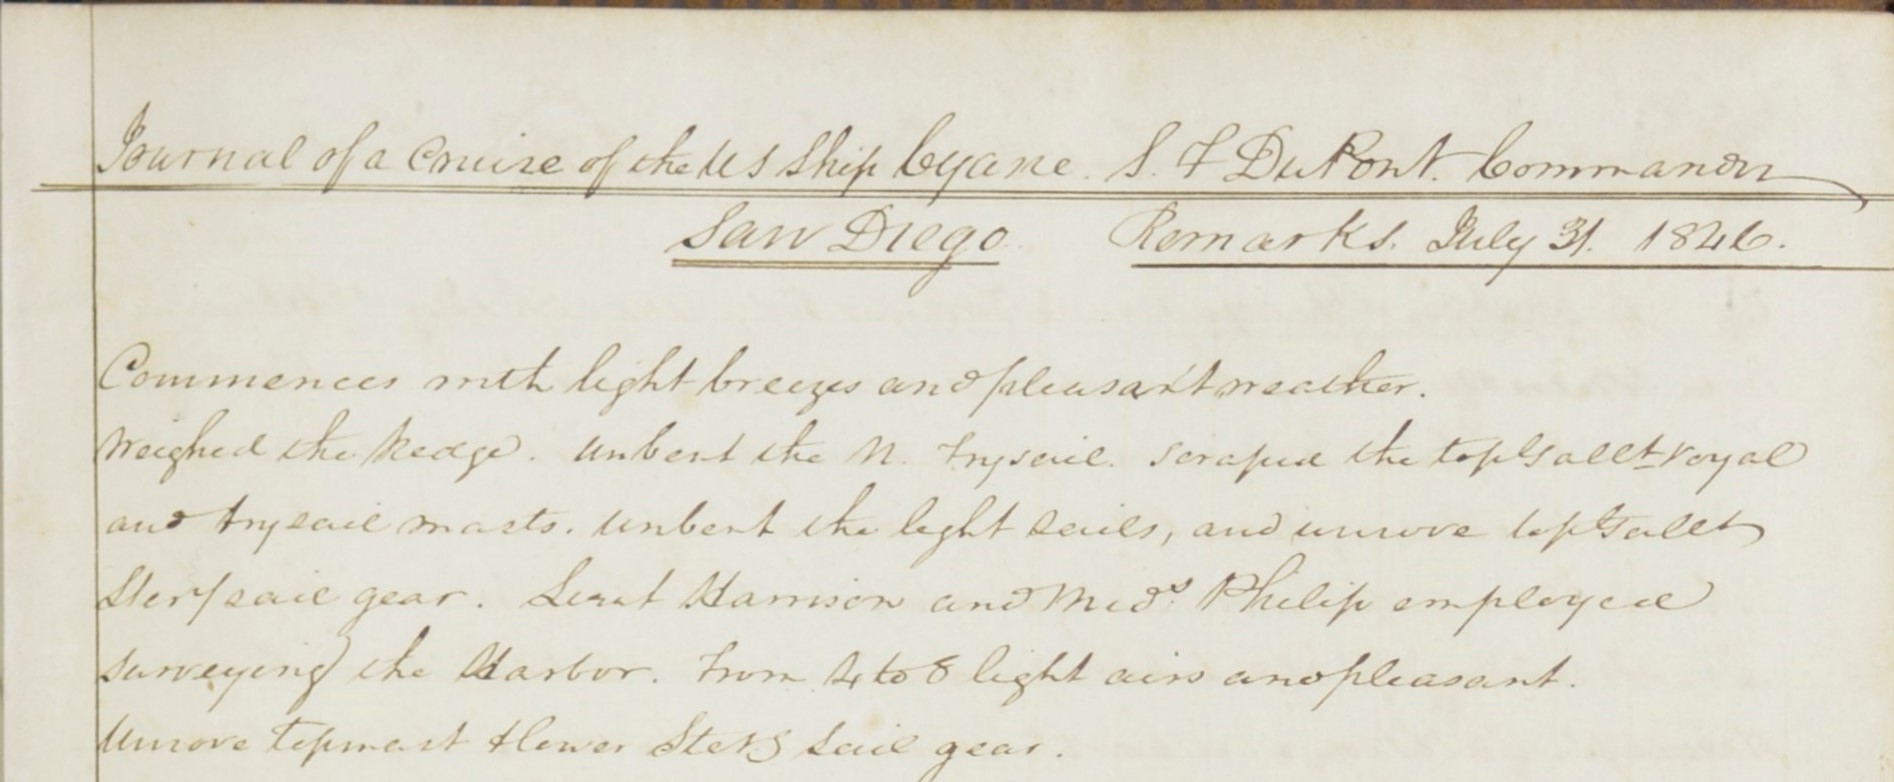 Journal of a Cruise of the US Ship Cyane. S. F DuPont. Commander
San Diego Remarks. July 31. 1846.
Commences with light breezes and pleasant weather.
Weighed the kedge. Unbent the M. Trysail. Scraped the topGallt royal
and trysail masts. Unbent the light sails, and unrove topGallt
sail gear. Lieut Harrison and Mids. Philip employed
surveying the Harbor. From 4 to 8 light airs and pleasant.
Unrove topmast & lower sail gear.